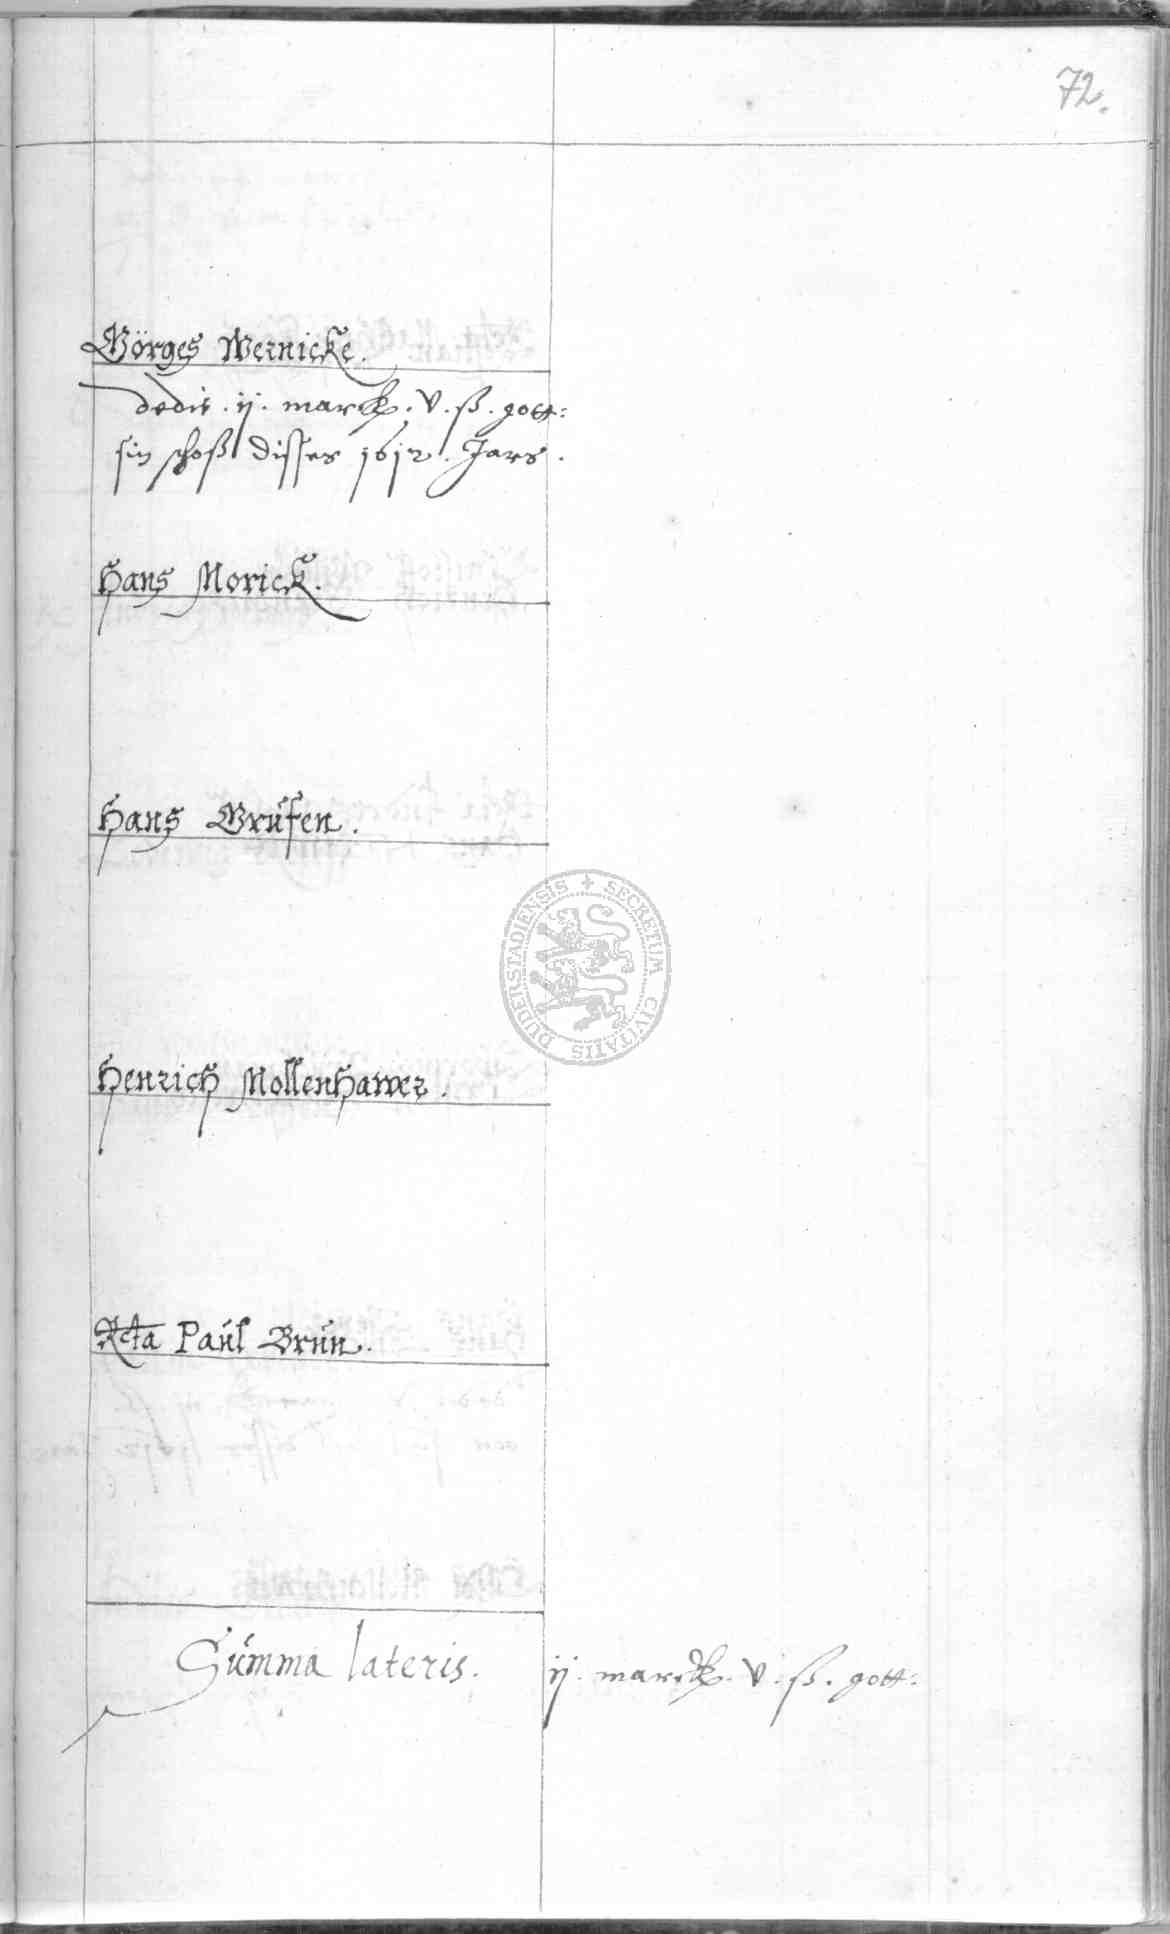 72.
Görges Wernicke.
dedit . ij . marck . v . ß . gott:
sin schoß disses 1612 . Jars .
Hans Morick.
Hans Brüsen.
Henrich Mollenhawer.
Rcta Paül Brün.
Sümma lateris. ij . marck . v . ß . gott:
SECRETUM CIVITATIS DUDERSTADIENSIS